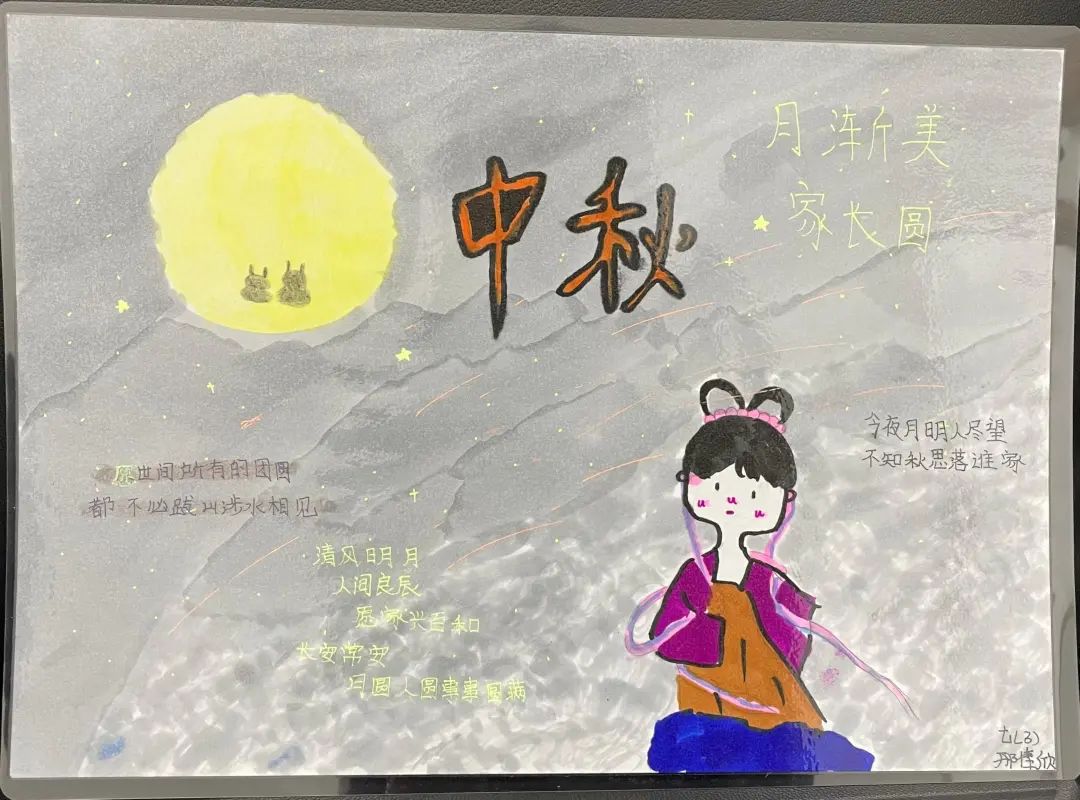 中秋
月渐美
家长圆
今夜月明人尽望
不知秋思落谁家
愿世间所有的团圆
都不必跋山涉水相见
清风明月
人间良辰
愿家兴百和
长安常安
月圆人圆事事圆满
七(3)